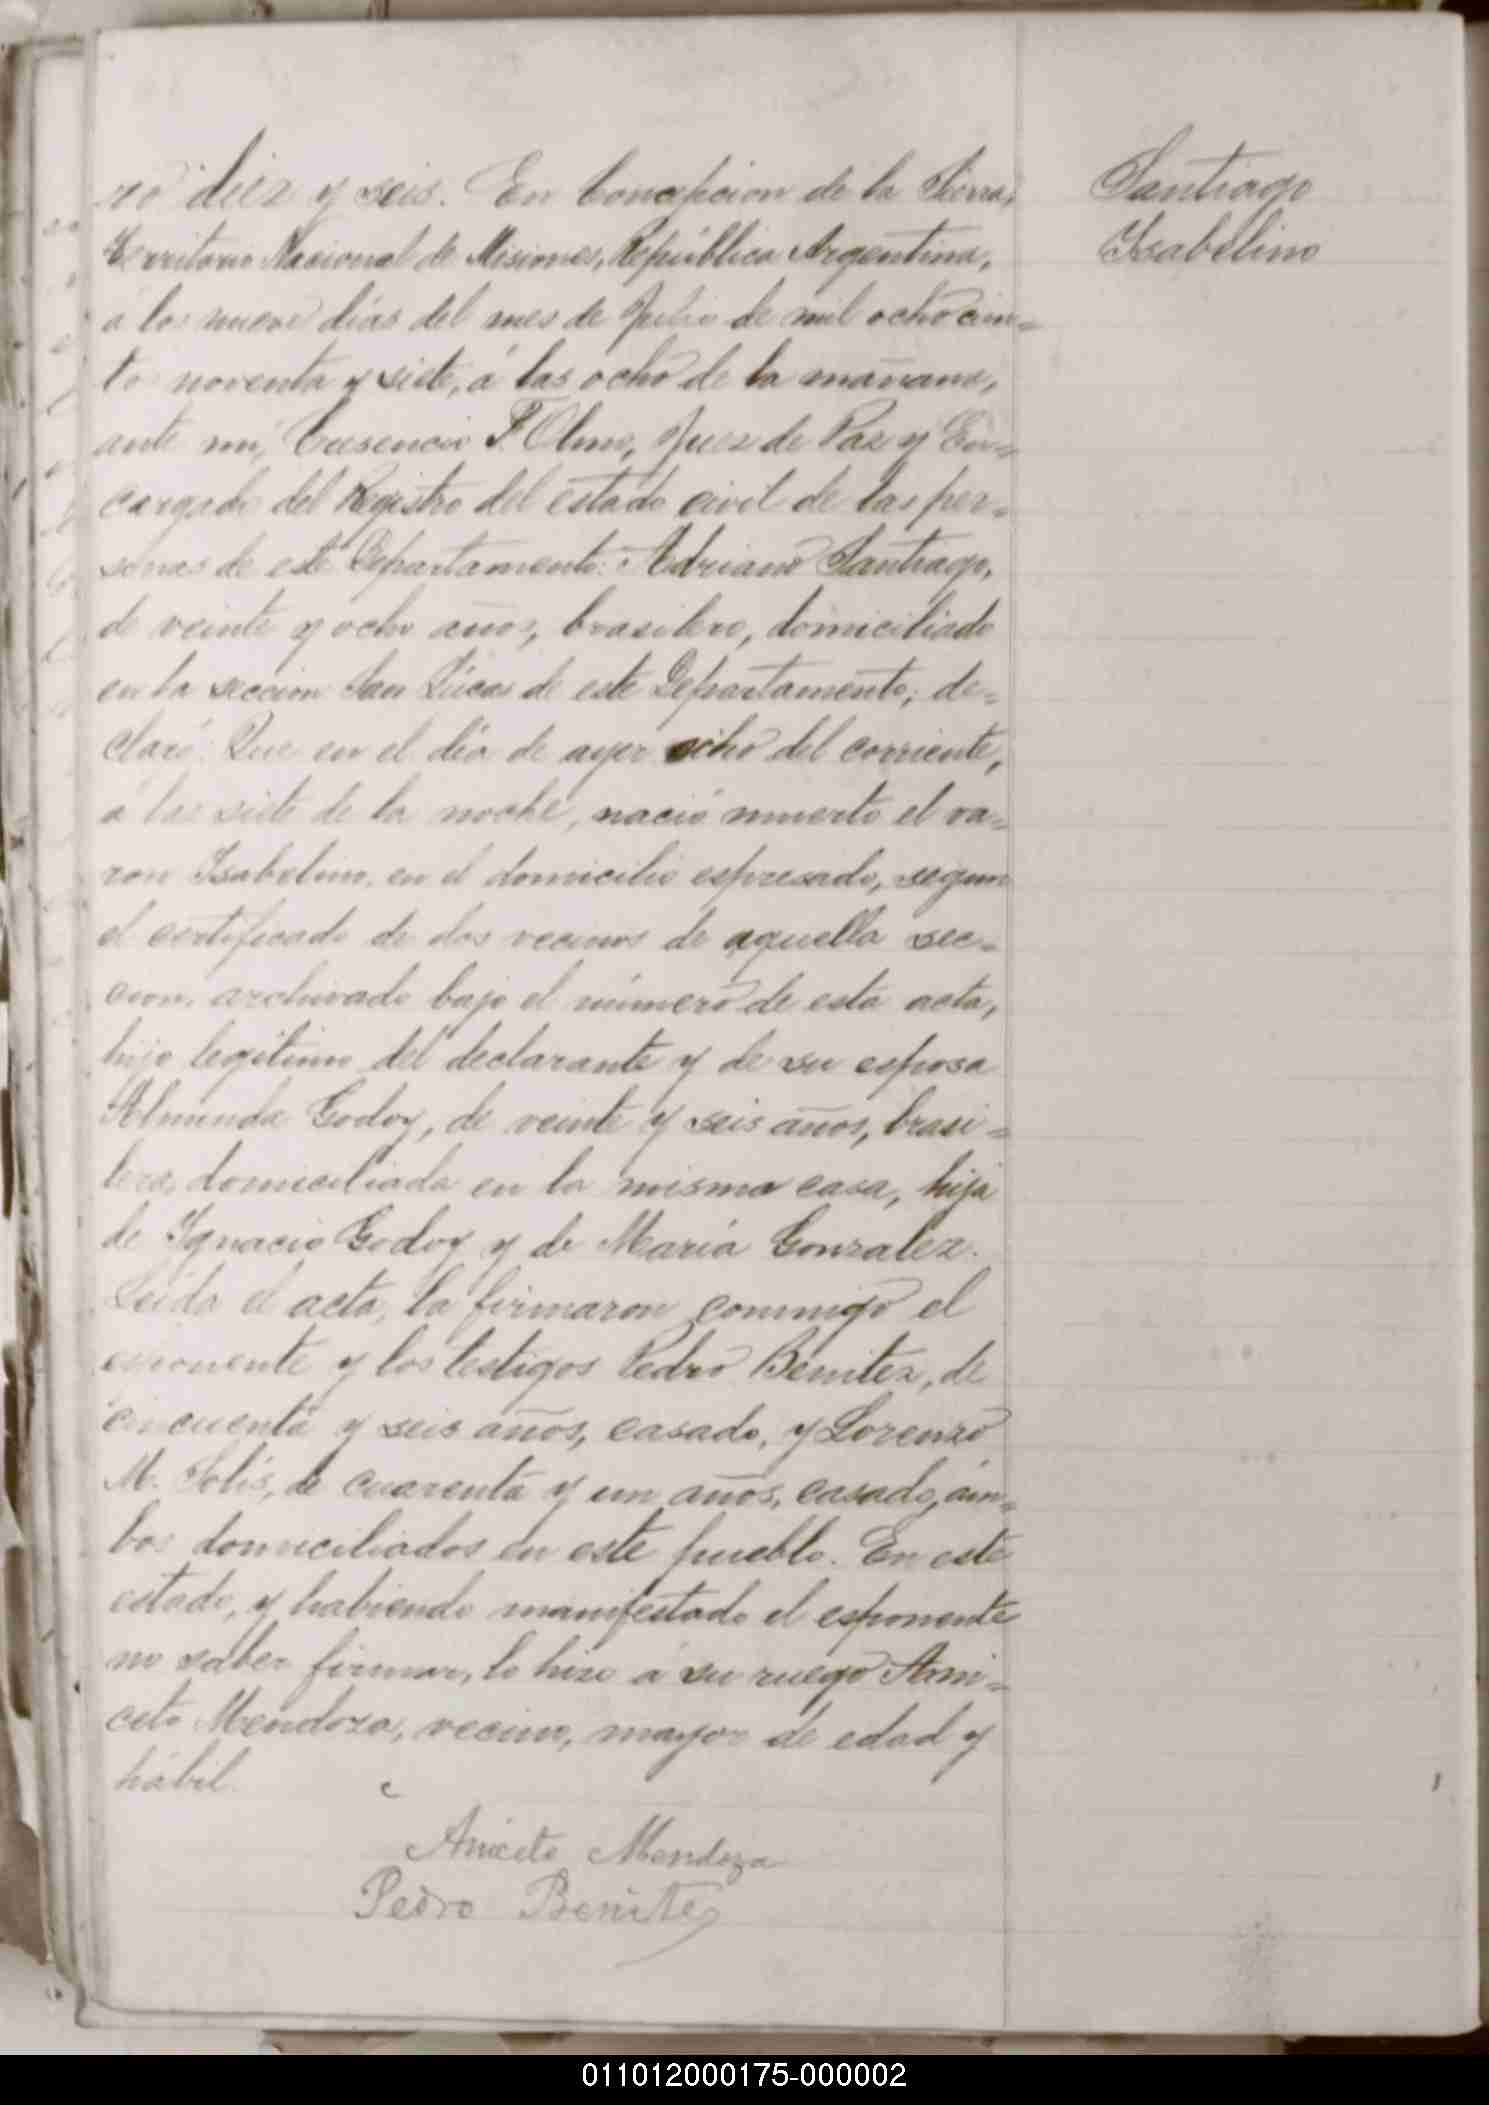 ro diez y seis. En Concepcion de la Sierra,
Territorio Nacional de Misiones, República Argentina,
á los nueve días del mes de Julio de mil ochocien=
to noventa y siete, á las ocho de la mañana,
ante mí, F. Olmo, Juez de Paz y En=
cargado del Registro del estado civil de las per=
sonas de este Departamento: Adriano Santiago,
de veinte y ocho años, brasilero, domiciliado
en la seccion San Lúcas de este Departamento, de=
claró: Que en el día de ayer ocho del corriente,
á las siete de la noche, nació muerto el va=
ron Isabelino, en el domicilio espresado, segun
el certificado de dos vecinos de aquella sec=
cion, archivado bajo el número de esta acta,
hijo legítimo del declarante y de su esposa
Godoy, de veinte y seis años, brasi=
lera, domiciliada en la misma casa, hija
de Ignacio Godoy y de María Gonzalez.
Leida el acta, la firmaron conmigo el
esponente y los testigos Pedro Benitez, de
cincuenta y seis años, casado, y Lorenzo
M. Solís, de cuarenta y un años, casado, ám=
bos domiciliados en este pueblo. En este
estado, y habiendo manifestado el esponente
no saber firmar, lo hizo á su ruego Ani=
ceto Mendoza, vecino, mayor de edad y
hábil.
Aniceto Mendoza
Pedro Benitez
Santiago
Isabelino
011012000175-000002